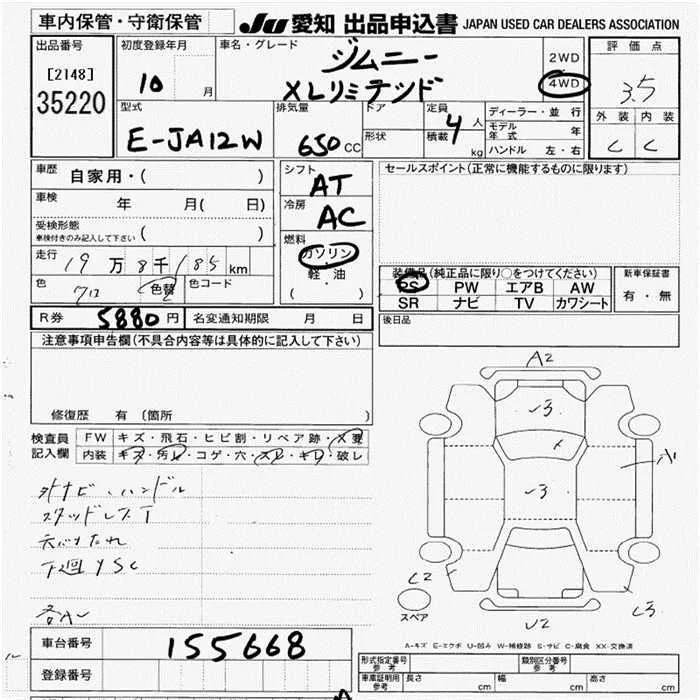 車内保管・守衛保管
JU 愛知 出品申込書 JAPAN USED CAR DEALERS ASSOCIATION
出品番号
[2148]
35220
初度登録年月
10 月
車名・グレード
ジムニー
XLリミテッド
2WD
4WD
評価点
3.5
外装 内装
C C
型式
E-JA12W
排気量
650 CC
ドア
形状
定員
積載
4 人
kg
ディーラー・並行
モデル年式 年
ハンドル 左・右
車歴
自家用・( )
車検 年 月( 日)
受検形態
車検付きのみ記入して下さい ( )
走行 19万8千185 km
色 色替 色コード
シフト
AT
冷房
AC
燃料
ガソリン
軽・油
( ・ )
セールスポイント(正常に機能するものに限ります)
装備品(純正品に限り○をつけてください)
PS PW エアB AW
SR ナビ TV カワシート
新車保証書
有・無
R券 5880円 名変通知期限 月 日
後日品
注意事項申告欄(不具合内容等は具体的に記入して下さい)
修復歴 有 〔箇所 〕
検査員
記入欄
FW キズ・飛石・ヒビ割・リペア跡・X要
内装 キズ・汚れ・コゲ・穴・スレ・キレ・破レ
外ナビ・ハンドル
スタッドレスT
天バリたれ
下廻りSC
A2
-3
-3
A1
C2
スペア
U2
C3
A-キズ E-エクボ U-凹み W-補修跡 S-サビ C-腐食 XX-交換済
車台番号 155668
登録番号
形式指定番号
参考
類別区分番号
参考
車庫証明用
参考
長さ cm 幅 cm 高さ cm